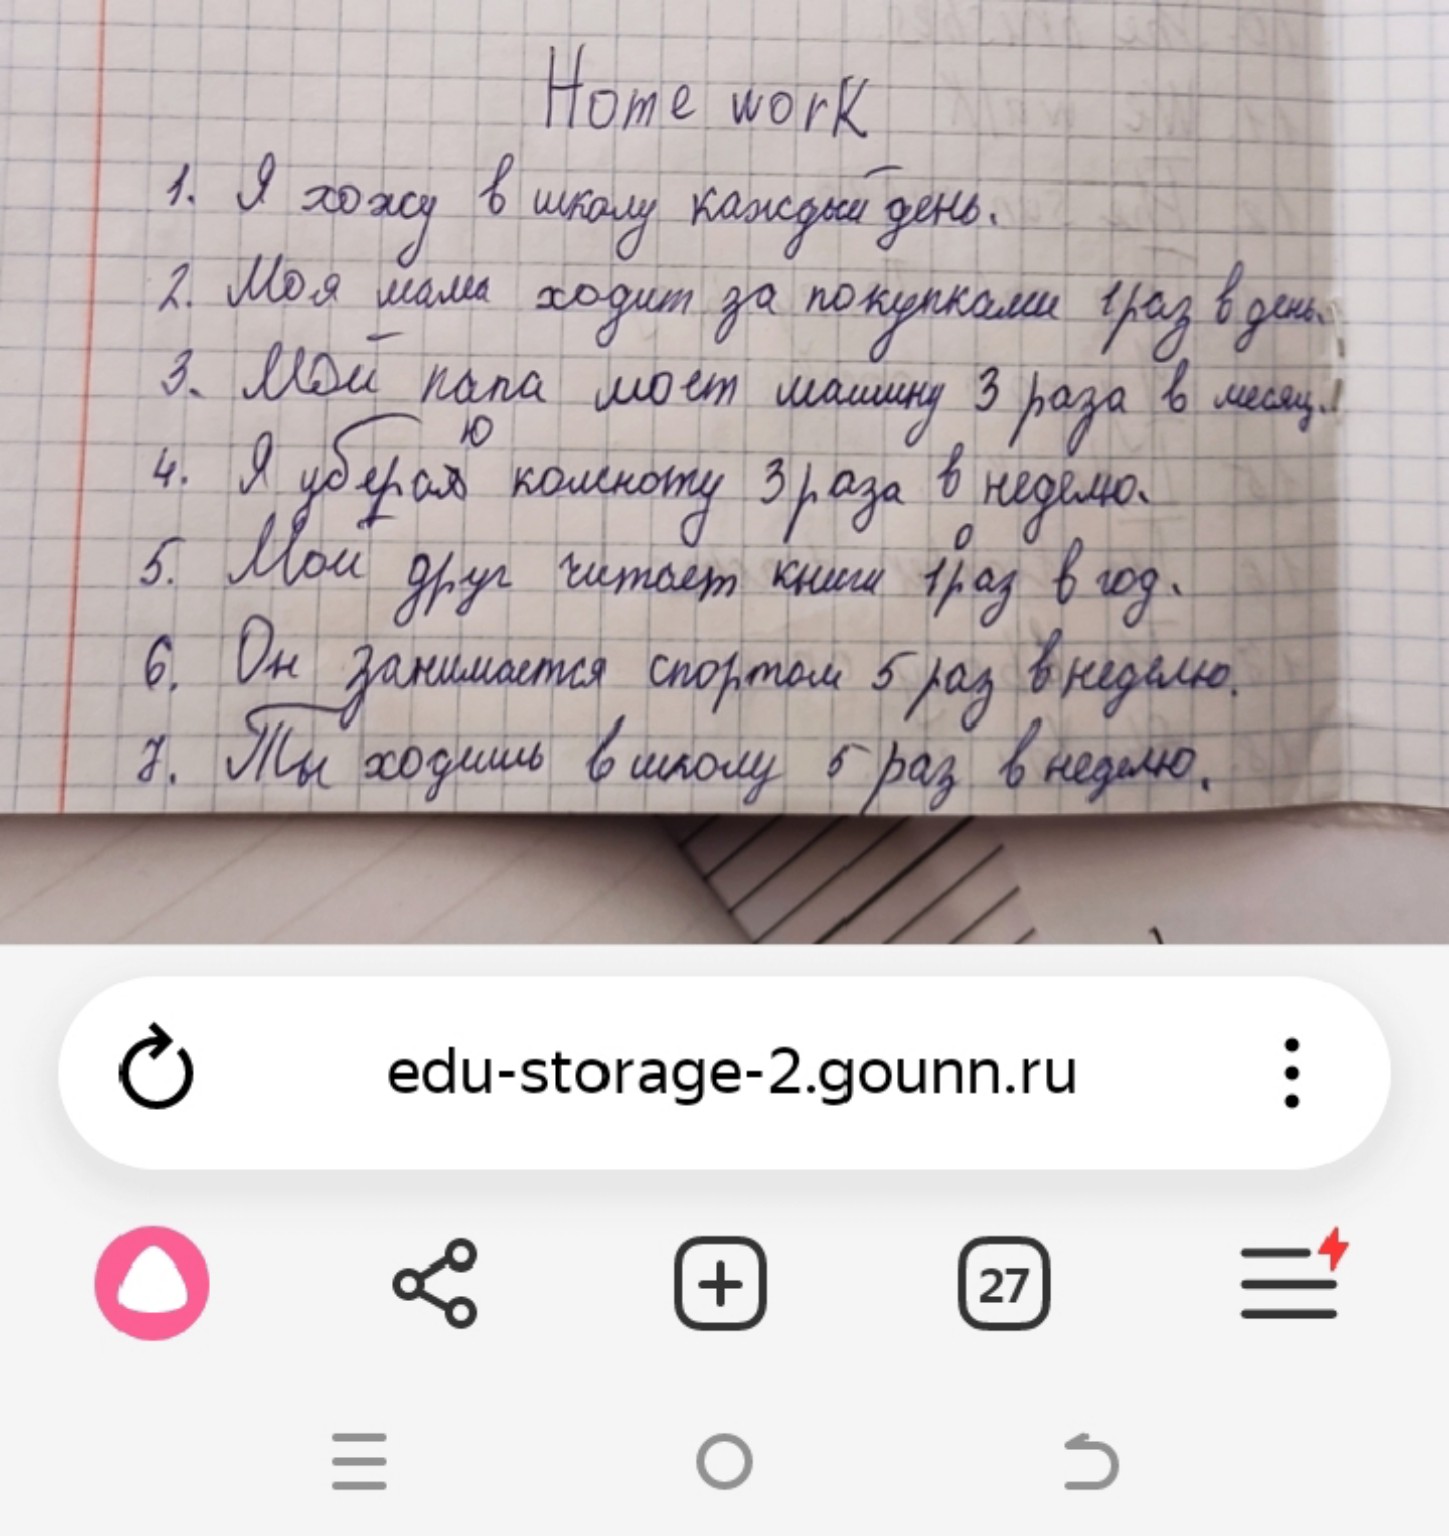 Home work
1. Я хожу в школу каждый день.
2. Моя мама ходит за покупками 1 раз в день.
3. Мой папа моет машину 3 раза в месяц.
4. Я убераю комноту 3 раза в неделю.
5. Мой друг читает книги 1 раз в год.
6. Он занимается спортом 5 раз в неделю.
7. Ты ходишь в школу 5 раз в неделю.
edu-storage-2.gounn.ru
27